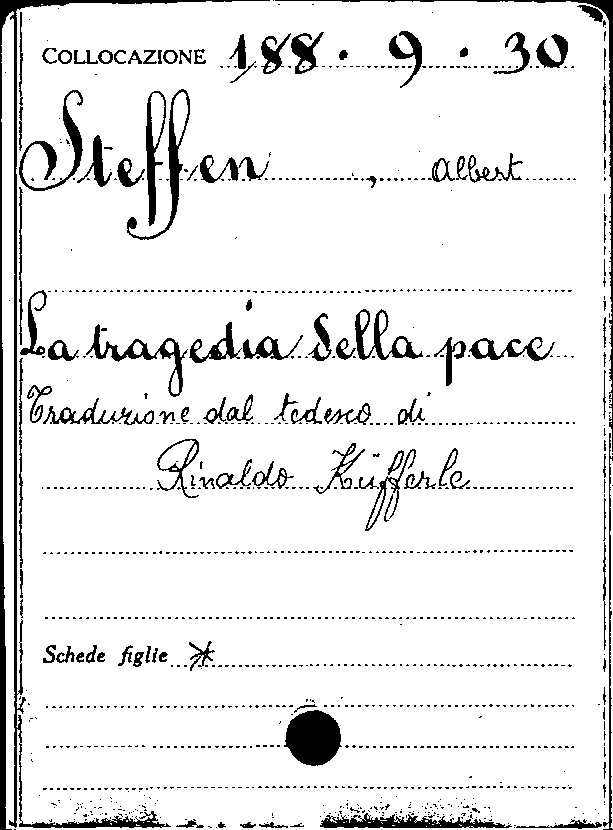 COLLOCAZIONE 188 · 9 · 30
Steffen, Albert
La tragedia della pace
Traduzione dal tedesco di
Rinaldo Küfferle
Schede figlie *